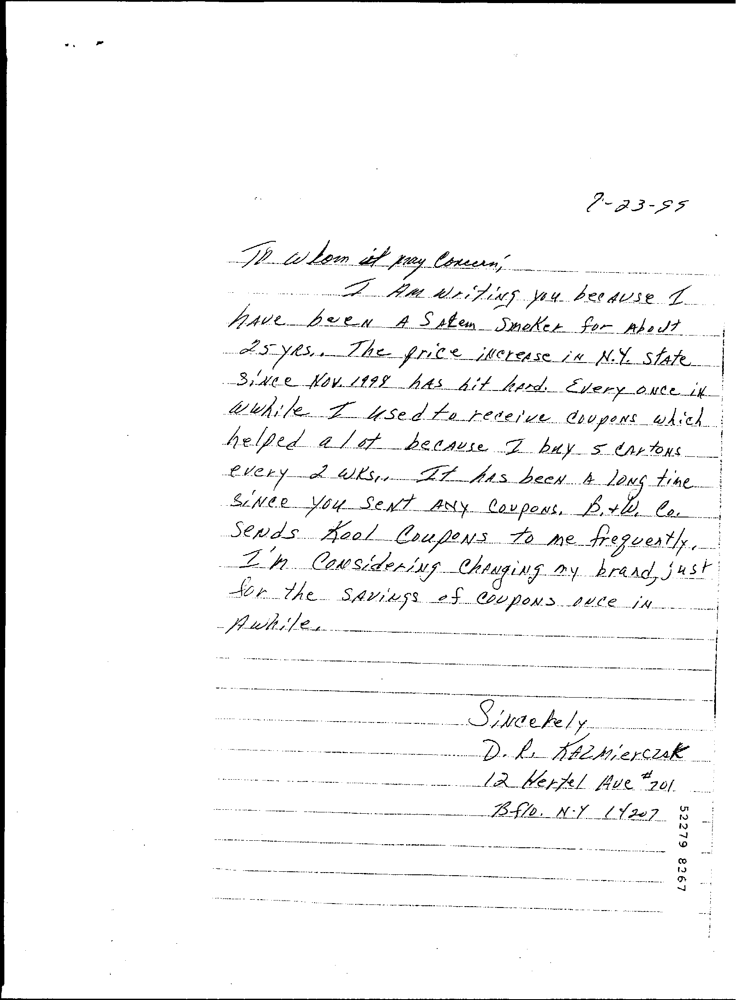 9-23-99
To Whom it may Concern;
I Am writing you because I
have been A Salem Smoker for About
25 yrs.. The price increase in N.Y. State
Since Nov. 1998 has hit hard. Every once in
awhile I used to receive coupons which
helped a lot because I buy 5 cartons
every 2 wks.. It has been A long time
since you sent Any coupons. B.+W. Co.
Sends Kool Coupons to me frequently.
I'm Considering Changing my brand, just
for the savings of coupons once in
Awhile.
Sincerely
D. R. Kazmierczak
12 Hertel Ave #701
Bflo. N.Y 14207
52279 8267